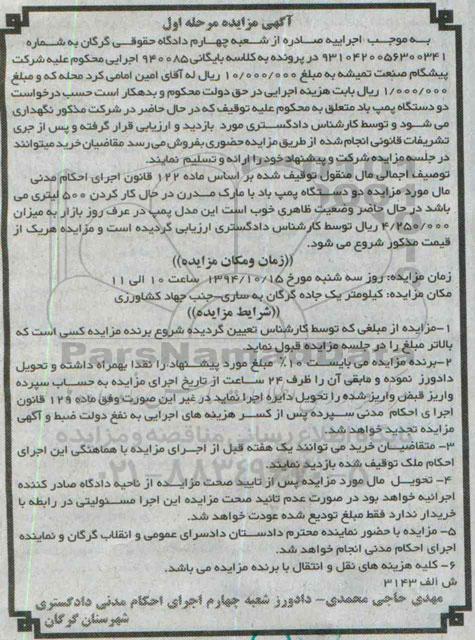 آگهی مزایده مرحله اول
به موجب اجراییه صادره از شعبه چهارم دادگاه حقوقی گرگان به شماره
۹۳۱۰۴۲۰۰۵۶۳۰۰۳۴۱ در پرونده به کلاسه بایگانی ۹۴۰۰۸۵ اجرایی محکوم علیه شرکت
پیشگام صنعت تمیشه به مبلغ ۱۰/۰۰۰/۰۰۰ ریال له آقای امین امامی کرد محله که و مبلغ
۱/۰۰۰/۰۰۰ ریال بابت هزینه اجرایی در حق دولت محکوم و بدهکار است حسب درخواست
دو دستگاه پمپ باد متعلق به محکوم علیه توقیف که در حال حاضر در شرکت مذکور نگهداری
می شود و توسط کارشناس دادگستری مورد بازدید و ارزیابی قرار گرفته و پس از جری
تشریفات قانونی انجام شده از طریق مزایده حضوری بفروش می رسد مقاضیان خرید میتوانند
در جلسه مزایده شرکت و پیشنهاد خود را ارائه و تسلیم نمایند.
توصیف اجمالی مال منقول توقیف شده بر اساس ماده ۱۲۲ قانون اجرای احکام مدنی
مال مورد مزایده دو دستگاه پمپ باد با مارک مدرن در حال کار کردن ۵۰۰ لیتری می
باشد در حال حاضر وضعیت ظاهری خوب است این مدل پمپ در عرف روز بازار به میزان
۴/۲۵۰/۰۰۰ ریال توسط کارشناس دادگستری ارزیابی گردیده است و مزایده هریک از
قیمت مذکور شروع می شود.
((زمان ومکان مزایده))
زمان مزایده: روز سه شنبه مورخ ۱۳۹۴/۱۰/۱۵ ساعت ۱۰ الی ۱۱
مکان مزایده: کیلومتر یک جاده گرگان به ساری-جنب جهاد کشاورزی
((شرایط مزایده))
۱-مزایده از مبلغی که توسط کارشناس تعیین گردیده شروع برنده مزایده کسی است که
بالاتر مبلغ را در جلسه مزایده قبول نماید.
۲-برنده مزایده می بایست ۱۰٪ مبلغ مورد پیشنهاد را نقدا بهمراه داشته و تحویل
دادورز نموده و مابقی آن را ظرف ۲۴ ساعت از تاریخ اجرای مزایده به حساب سپرده
واریز قبض واریز شده را تحویل دایره اجرا نماید در غیر این صورت وفق ماده ۱۲۹ قانون
اجرای احکام مدنی سپرده پس از کسر هزینه های اجرایی به نفع دولت ضبط و آگهی
مزایده تجدید خواهد شد.
۳- متقاضیان خرید می توانند یک هفته قبل از اجرای مزایده با هماهنگی این اجرای
احکام ملک توقیف شده بازدید نمایند.
۴- تحویل مال مورد مزایده پس از تایید صحت مزایده از ناحیه دادگاه صادر کننده
اجرائیه خواهد بود در صورت عدم تائید صحت مزایده این اجرا مسئولیتی در رابطه با
خریدار ندارد فقط مبلغ تودیع شده عودت خواهد شد.
۵- مزایده با حضور نماینده محترم دادستان دادسرای عمومی و انقلاب گرگان و نماینده
اجرای احکام مدنی انجام خواهد شد.
۶- کلیه هزینه های نقل و انتقال با برنده مزایده می باشد.
ش الف ۳۱۴۳
مهدی حاجی محمدی- دادورز شعبه چهارم اجرای احکام مدنی دادگستری
شهرستان گرگان
ParsNamadData